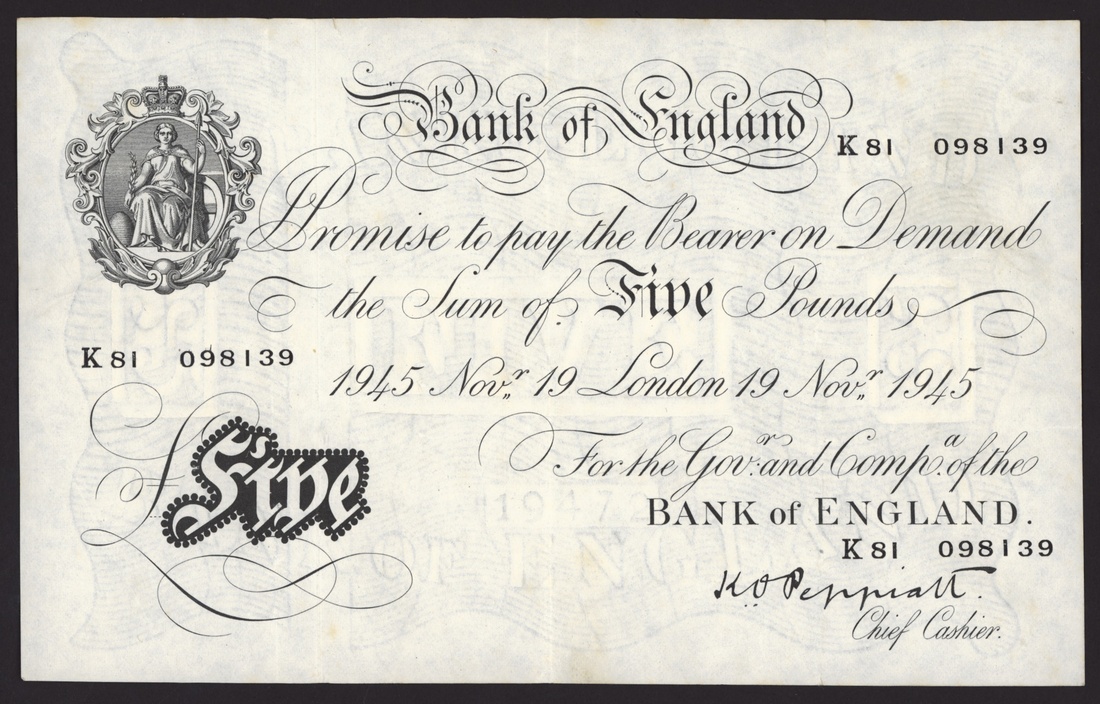 Bank of England
K 81 098139
I Promise to pay the Bearer on Demand
the Sum of Five Pounds
K 81 098139
1945 Novr. 19 London 19 Novr. 1945
For the Govr. and Compa. of the
£Five
BANK of ENGLAND.
K 81 098139
K.O. Peppiatt.
Chief Cashier.